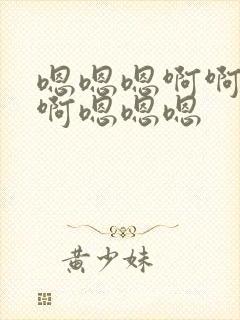 嗯嗯嗯啊啊
啊嗯嗯嗯
黄少妹